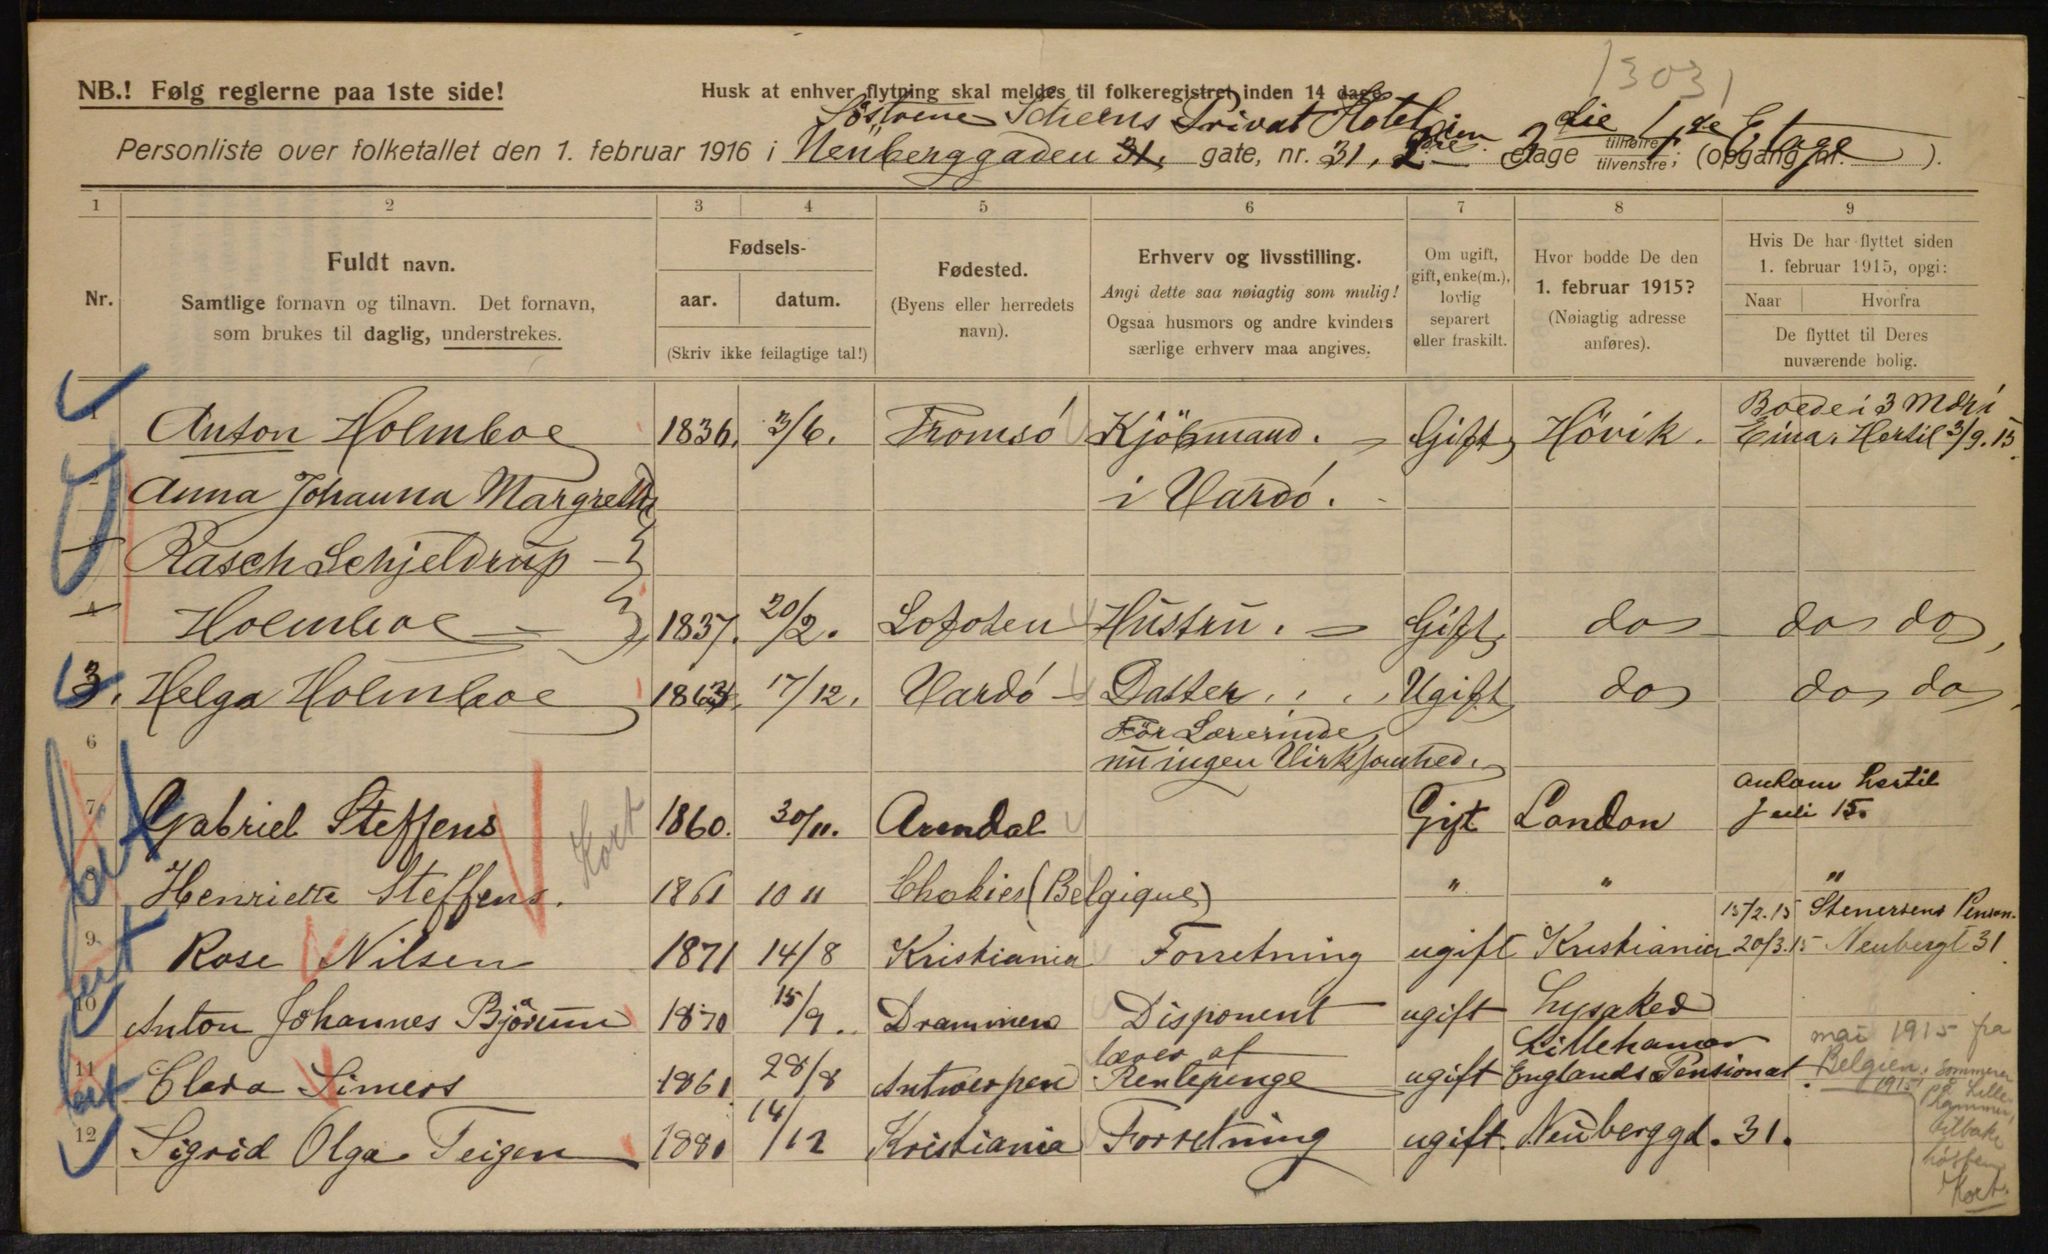 13031
NB.! Følg reglerne paa 1ste side!
Husk at enhver flytning skal meldes til folkeregistret inden 14 dage.
Söstrene Scheens Privat Hotel
Personliste over folketallet den 1. februar 1916 i Neuberggaden 31, gate, nr. 31, etage tilhøire tilvenstre; (opgang nr. ).
die 1 de Etage
1 2 3 4 5 6 7 8 9
Nr.
Fuldt navn.
Samtlige fornavn og tilnavn. Det fornavn,
som brukes til daglig, understrekes.
Fødsels-
aar. datum.
(Skriv ikke feilagtige tal!)
Fødested.
(Byens eller herredets
navn).
Erhverv og livsstilling.
Angi dette saa nøiagtig som mulig!
Ogsaa husmors og andre kvinders
særlige erhverv maa angives.
Om ugift,
gift, enke(m.),
lovlig
separert
eller fraskilt.
Hvor bodde De den
1. februar 1915?
(Nøiagtig adresse
anføres).
Hvis De har flyttet siden
1. februar 1915, opgi:
Naar Hvorfra
De flyttet til Deres
nuværende bolig.
Boede i 3 Mdr i
1 Anton Holmboe 1836. 3/6. Tromsö Kjöbmand. Gift Hövik. Hertil 3/9. 15.
Anna Johanna Margrethe i Vardö.
Rasch Schjeldrup
4 Holmboe 1837. 20/2. Lofoten Hustru. Gift do do do
3. Helga Holmboe 1863. 17/12. Vardö Datter. Ugift do do do
6 För Lærerinde
nu ingen Virksomhed.
7 Gabriel Steffens Kort 1860. 30/11. Arendal Gift London ankom hertil
Juli 15.
Henriette Steffens. 1861 10 11 Chokier (Belgique) " " "
15/2. 15 Stenersens Pension.
9 Rose Nilsen 1871 14/8 Kristiania Forretning ugift Kristiania 20/3. 15 Neubergt 31.
10 Anton Johannes Bjórum 1870 15/9. Drammen Disponent ugift Lysaker
11 Clara Simers 1861 28/8 Antwerpen lever af Rentepenge ugift Lillehamar Englands Pensionat.
mai 1915 fra
Belgien. Sommeren
1915 på Lille-
hammer,
tilbake
høsten
Kort.
12 Sigrid Olga Teigen 1880 14/12 Kristiania Forretning ugift. Neuberggd. 31.